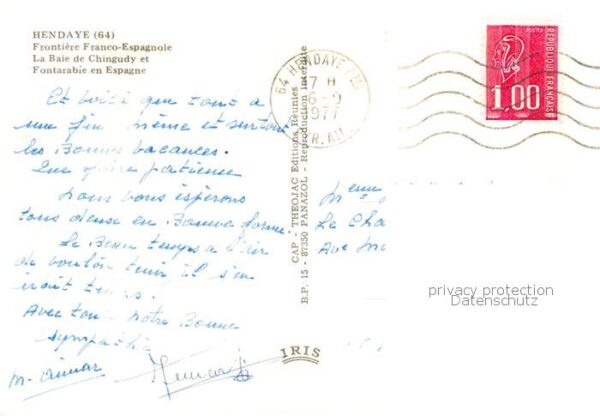 HENDAYE (64)
Frontière Franco-Espagnole
La Baie de Chingudy et
Fontarabie en Espagne
Et voilà que tout a
une fin même et surtout
les Bonnes vacances.
Que faire patience
Nous vous espérons
tous deux en Bonne forme.
Le Beau temps a l'air
de vouloir tenir il s'en
irait temps.
Avec tou notre Bonne
sympathie
CAP - THEOJAC Editions Réunies
B.P. 15 - 87350 PANAZOL - Reproduction interdite
IRIS
64 HENDAYE
17 H
6-9
1977
POSTES
REPUBLIQUE FRANÇAISE
1,00
Le
Ave
privacy protection
Datenschutz